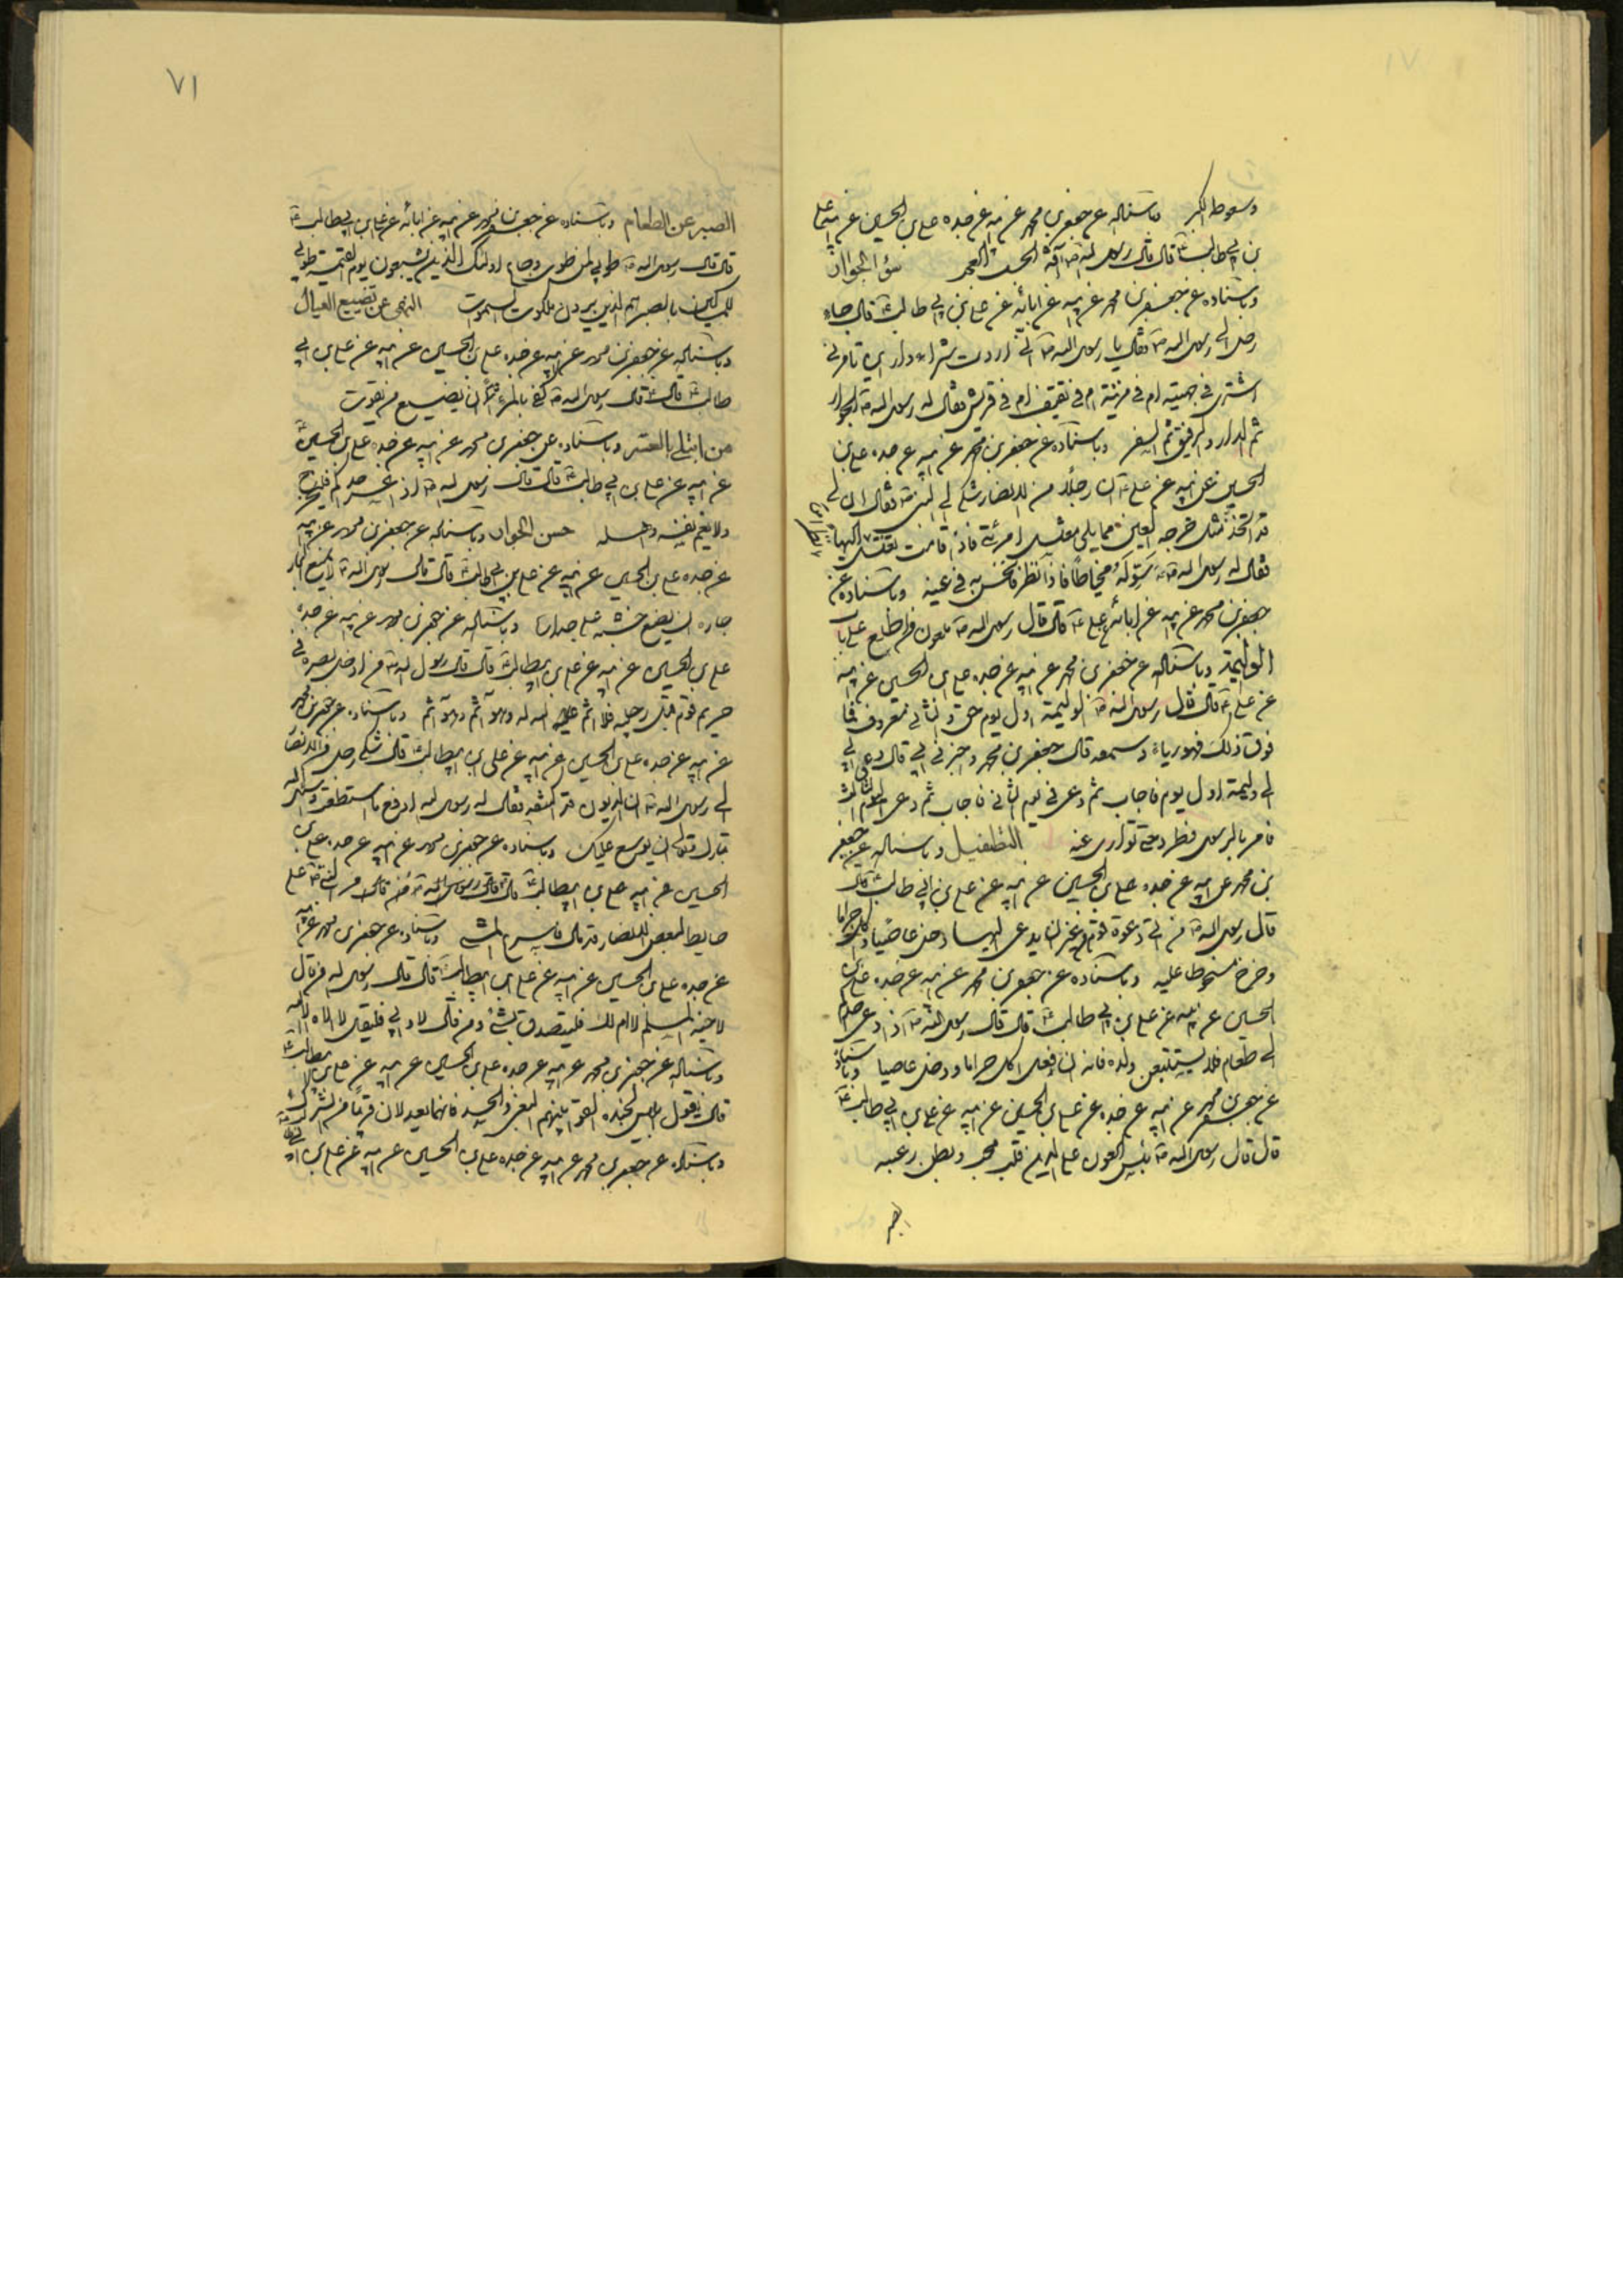 وسوط الكبر وباسناده عن جعفر بن محمد عن ابيه عن جده علي بن الحسين عن ابيه عن علي
بن ابي طالب قال قال رسول الله آفة الحسب العجب سؤ الجوار
وباسناده عن جعفر بن محمد عن ابيه عن ابائه عن علي بن ابي طالب قال جاء
رجل الى رسول الله فقال يا رسول الله اني اردت شراء دار اين تامرني
اشتري في جهينة ام في مزينة ام في ثقيف ام في قريش فقال له رسول الله الجوار
ثم الدار والرفيق ثم السفر وباسناده عن جعفر بن محمد عن ابيه عن جده علي بن
الحسين عن ابيه عن علي ان رجلا من الانصار شكى الى النبي فقال ان لي
فقال له رسول الله فاذا نظر فانخس به في عينه وباسناده عن
جعفر بن محمد عن ابيه عن ابائه عن علي قال قال رسول الله ملعون من اطلع على باب
الوليمة وباسناده عن جعفر بن محمد عن ابيه عن جده علي بن الحسين عن ابيه
عن علي قال قال رسول الله الوليمة اول يوم حق والثاني معروف فما
فوق ذلك فهو رياء وسمعه قال جعفر بن محمد واخبرني ابي قال دعي ابي
الى وليمة اول يوم فاجاب ثم دعي في يوم الثاني فاجاب ثم دعي اليوم الثالث
فامر بالرسول فطرد حتى توارى عنه التطفيل وباسناده عن جعفر
بن محمد عن ابيه عن جده علي بن الحسين عن ابيه عن علي بن ابي طالب قال
قال رسول الله من اتى دعوة قوم من غير ان يدعى اليها دخل عاصيا واكل حراما
وخرج مسخوطا عليه وباسناده عن جعفر بن محمد عن ابيه عن جده علي بن
الحسين عن ابيه عن علي بن ابي طالب قال قال رسول الله اذا دعي احدكم
الى طعام فلا يستتبعن ولده فانه ان فعل اكل حراما ودخل عاصيا وباسناده
عن جعفر بن محمد عن ابيه عن جده عن علي بن الحسين عن ابيه عن علي بن ابي طالب
قال قال رسول الله بئس العون على الدين قلب نخب وبطن رغيب
الصبر
٧١
الصبر عن الطعام وباسناده عن جعفر بن محمد عن ابيه عن ابائه عن علي بن ابيطالب
قال قال رسول الله طوبى لمن طوى وجاع اولئك الذين يشبعون يوم القيمة طوبى
للمساكين بالصبر هم الذين يرون ملكوت السموات النهي عن تضييع العيال
وباسناده عن جعفر بن محمد عن ابيه عن جده علي بن الحسين عن ابيه عن علي بن ابي
طالب قال قال رسول الله كفى بالمرء اثما ان يضيع من يقوت
من ابتلي بالعسر وباسناده عن جعفر بن محمد عن ابيه عن جده علي بن الحسين
عن ابيه عن علي بن ابي طالب قال قال رسول الله اذا اعسر احدكم فليخرج
ولا يغم نفسه واهله حسن الجوار وباسناده عن جعفر بن محمد عن ابيه
عن جده علي بن الحسين عن ابيه عن علي بن ابيطالب قال قال رسول الله لا يمنع الجار
جاره ان يضع خشبه على جداره وباسناده عن جعفر بن محمد عن ابيه عن جده
علي بن الحسين عن ابيه عن علي بن ابيطالب قال قال رسول الله من ادخل بصره في
حريم قوم قبل رجليه فلا اذن له وهو آثم وباسناده عن جعفر بن محمد
عن ابيه عن جده علي بن الحسين عن ابيه عن علي بن ابيطالب قال شكى رجل من الانصار
الى رسول الله ان الديون قد اكتنفته فقال له رسول الله ارفع ما استطعت وسل الله
تبارك وتعالى ان يوسع عليك وباسناده عن جعفر بن محمد عن ابيه عن جده علي بن
الحسين عن ابيه علي بن ابيطالب قال مر النبي على
حايط لبعض الانصار قد مال فاسرع المشي وباسناده عن جعفر بن محمد عن ابيه
عن جده علي بن الحسين عن ابيه عن علي بن ابيطالب قال قال رسول الله من قال
لاخيه المسلم لا ام لك فليتصدق بشئ ومن قال لا وابي فليقل لا اله الا الله
وباسناده عن جعفر بن محمد عن ابيه عن جده علي بن الحسين عن ابيه عن علي بن ابيطالب
قال يقول ابليس لجنده القوا بينهم البغي والحسد فانهما يعدلان قريبا من الشرك
وباسناده عن جعفر بن محمد عن ابيه عن جده علي بن الحسين عن ابيه عن علي بن ابي